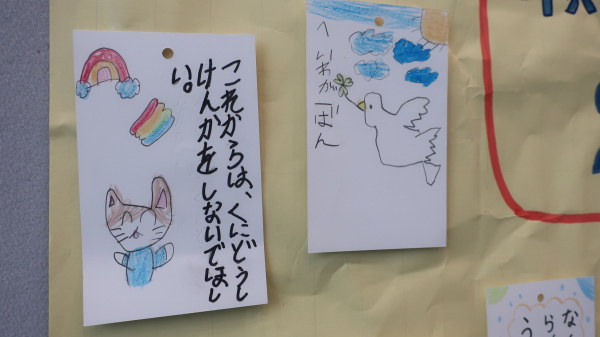 これからは、くにどうし
けんかをしないでほし
い。
へいわが1ばん